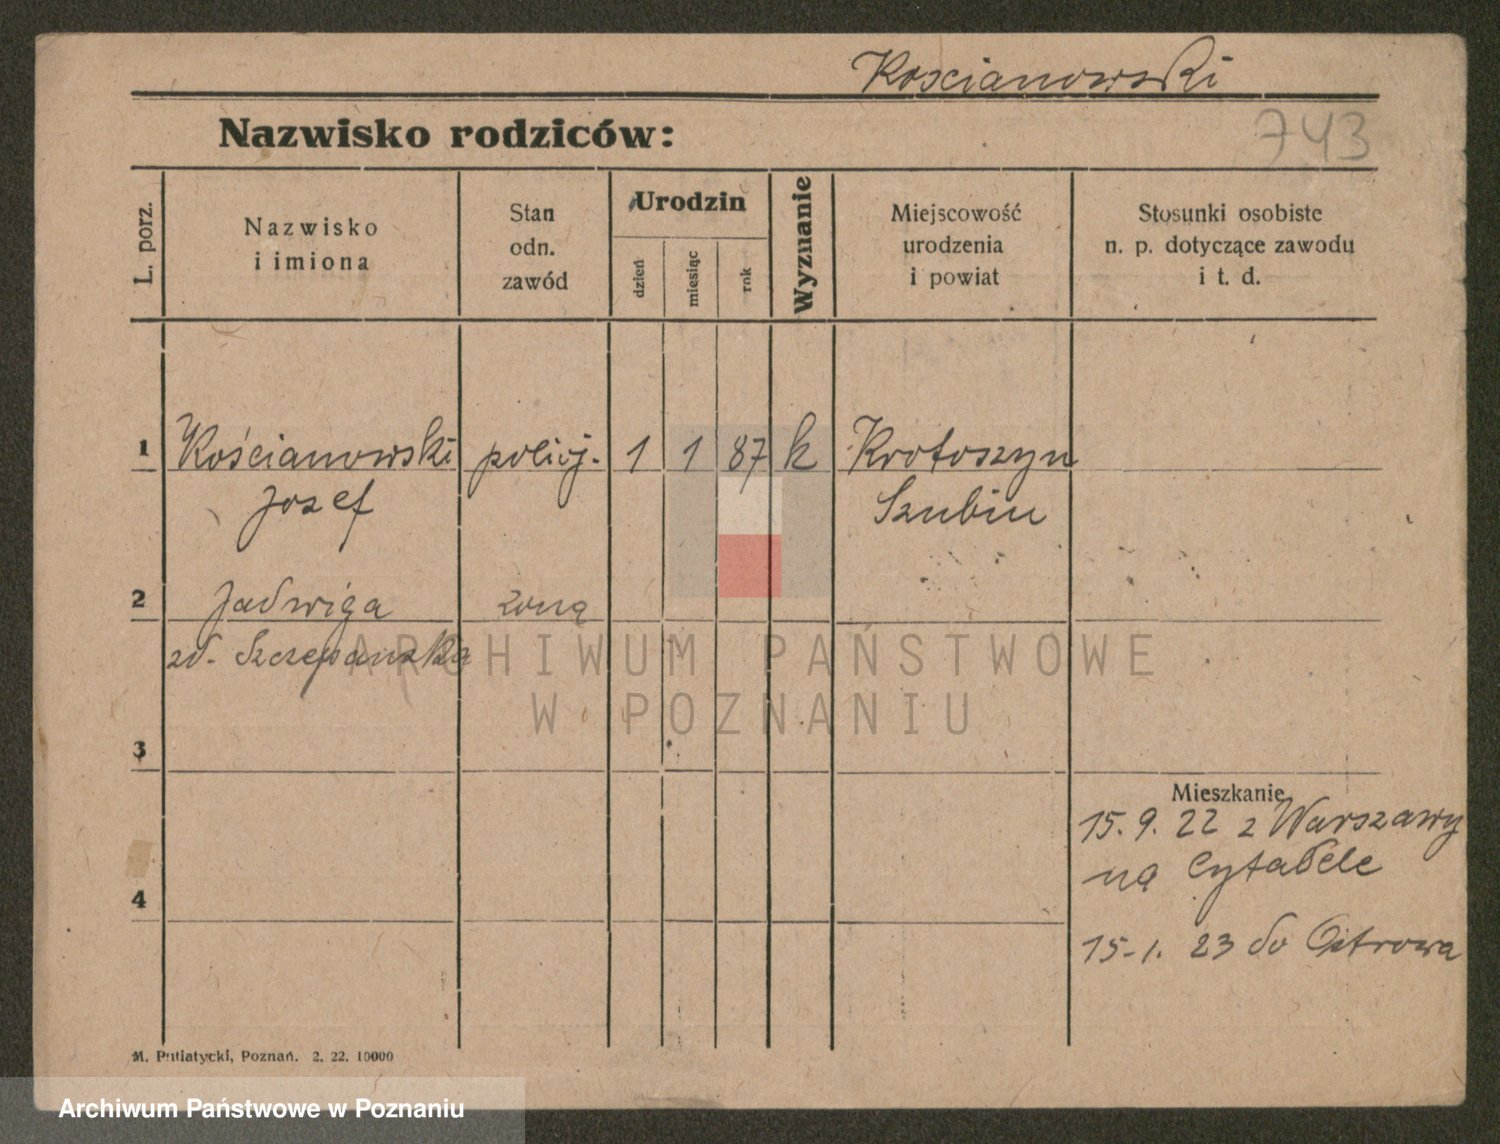 Koscianowski
Nazwisko rodziców:
743
L. porz.
Nazwisko
i imiona
Stan
odn.
zawód
Urodzin
dzień
miesiąc
rok
Wyznanie
Miejscowość
urodzenia
i powiat
Stosunki osobiste
n. p. dotyczące zawodu
i t. d.
1 Kościanowski policj. 1 1 87 k Krotoszyn
Jozef Szubin
2 Jadwiga zona
zd. Szczepanska
3
4
Mieszkanie
15. 9. 22 z Warszawy
na Cytadele
15-1. 23 do Ostrowa
M. Putiatycki, Poznań. 2. 22. 10000
ARCHIWUM PAŃSTWOWE
W POZNANIU
Archiwum Państwowe w Poznaniu